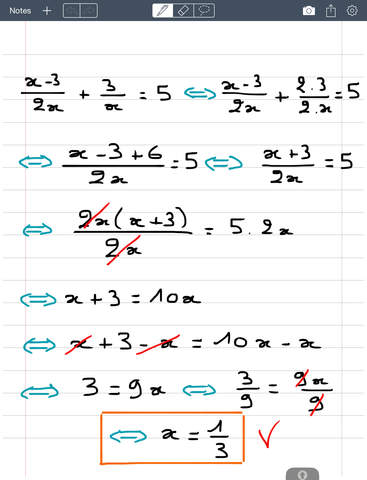 Notes
(x-3)/(2x) + 3/x = 5 ⇔ (x-3)/(2x) + (2.3)/(2.x) = 5
⇔ (x-3+6)/(2x) = 5 ⇔ (x+3)/(2x) = 5
⇔ (2x(x+3))/(2x) = 5.2x
⇔ x+3 = 10x
⇔ x+3-x = 10x-x
⇔ 3 = 9x ⇔ 3/9 = (9x)/9
⇔ x = 1/3 ✓